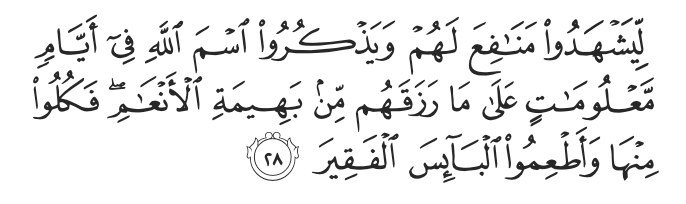 لِّيَشْهَدُوا۟ مَنَـٰفِعَ لَهُمْ وَيَذْكُرُوا۟ ٱسْمَ ٱللَّهِ فِىٓ أَيَّامٍ
مَّعْلُومَـٰتٍ عَلَىٰ مَا رَزَقَهُم مِّنۢ بَهِيمَةِ ٱلْأَنْعَـٰمِ ۖ فَكُلُوا۟
مِنْهَا وَأَطْعِمُوا۟ ٱلْبَآئِسَ ٱلْفَقِيرَ ٢٨